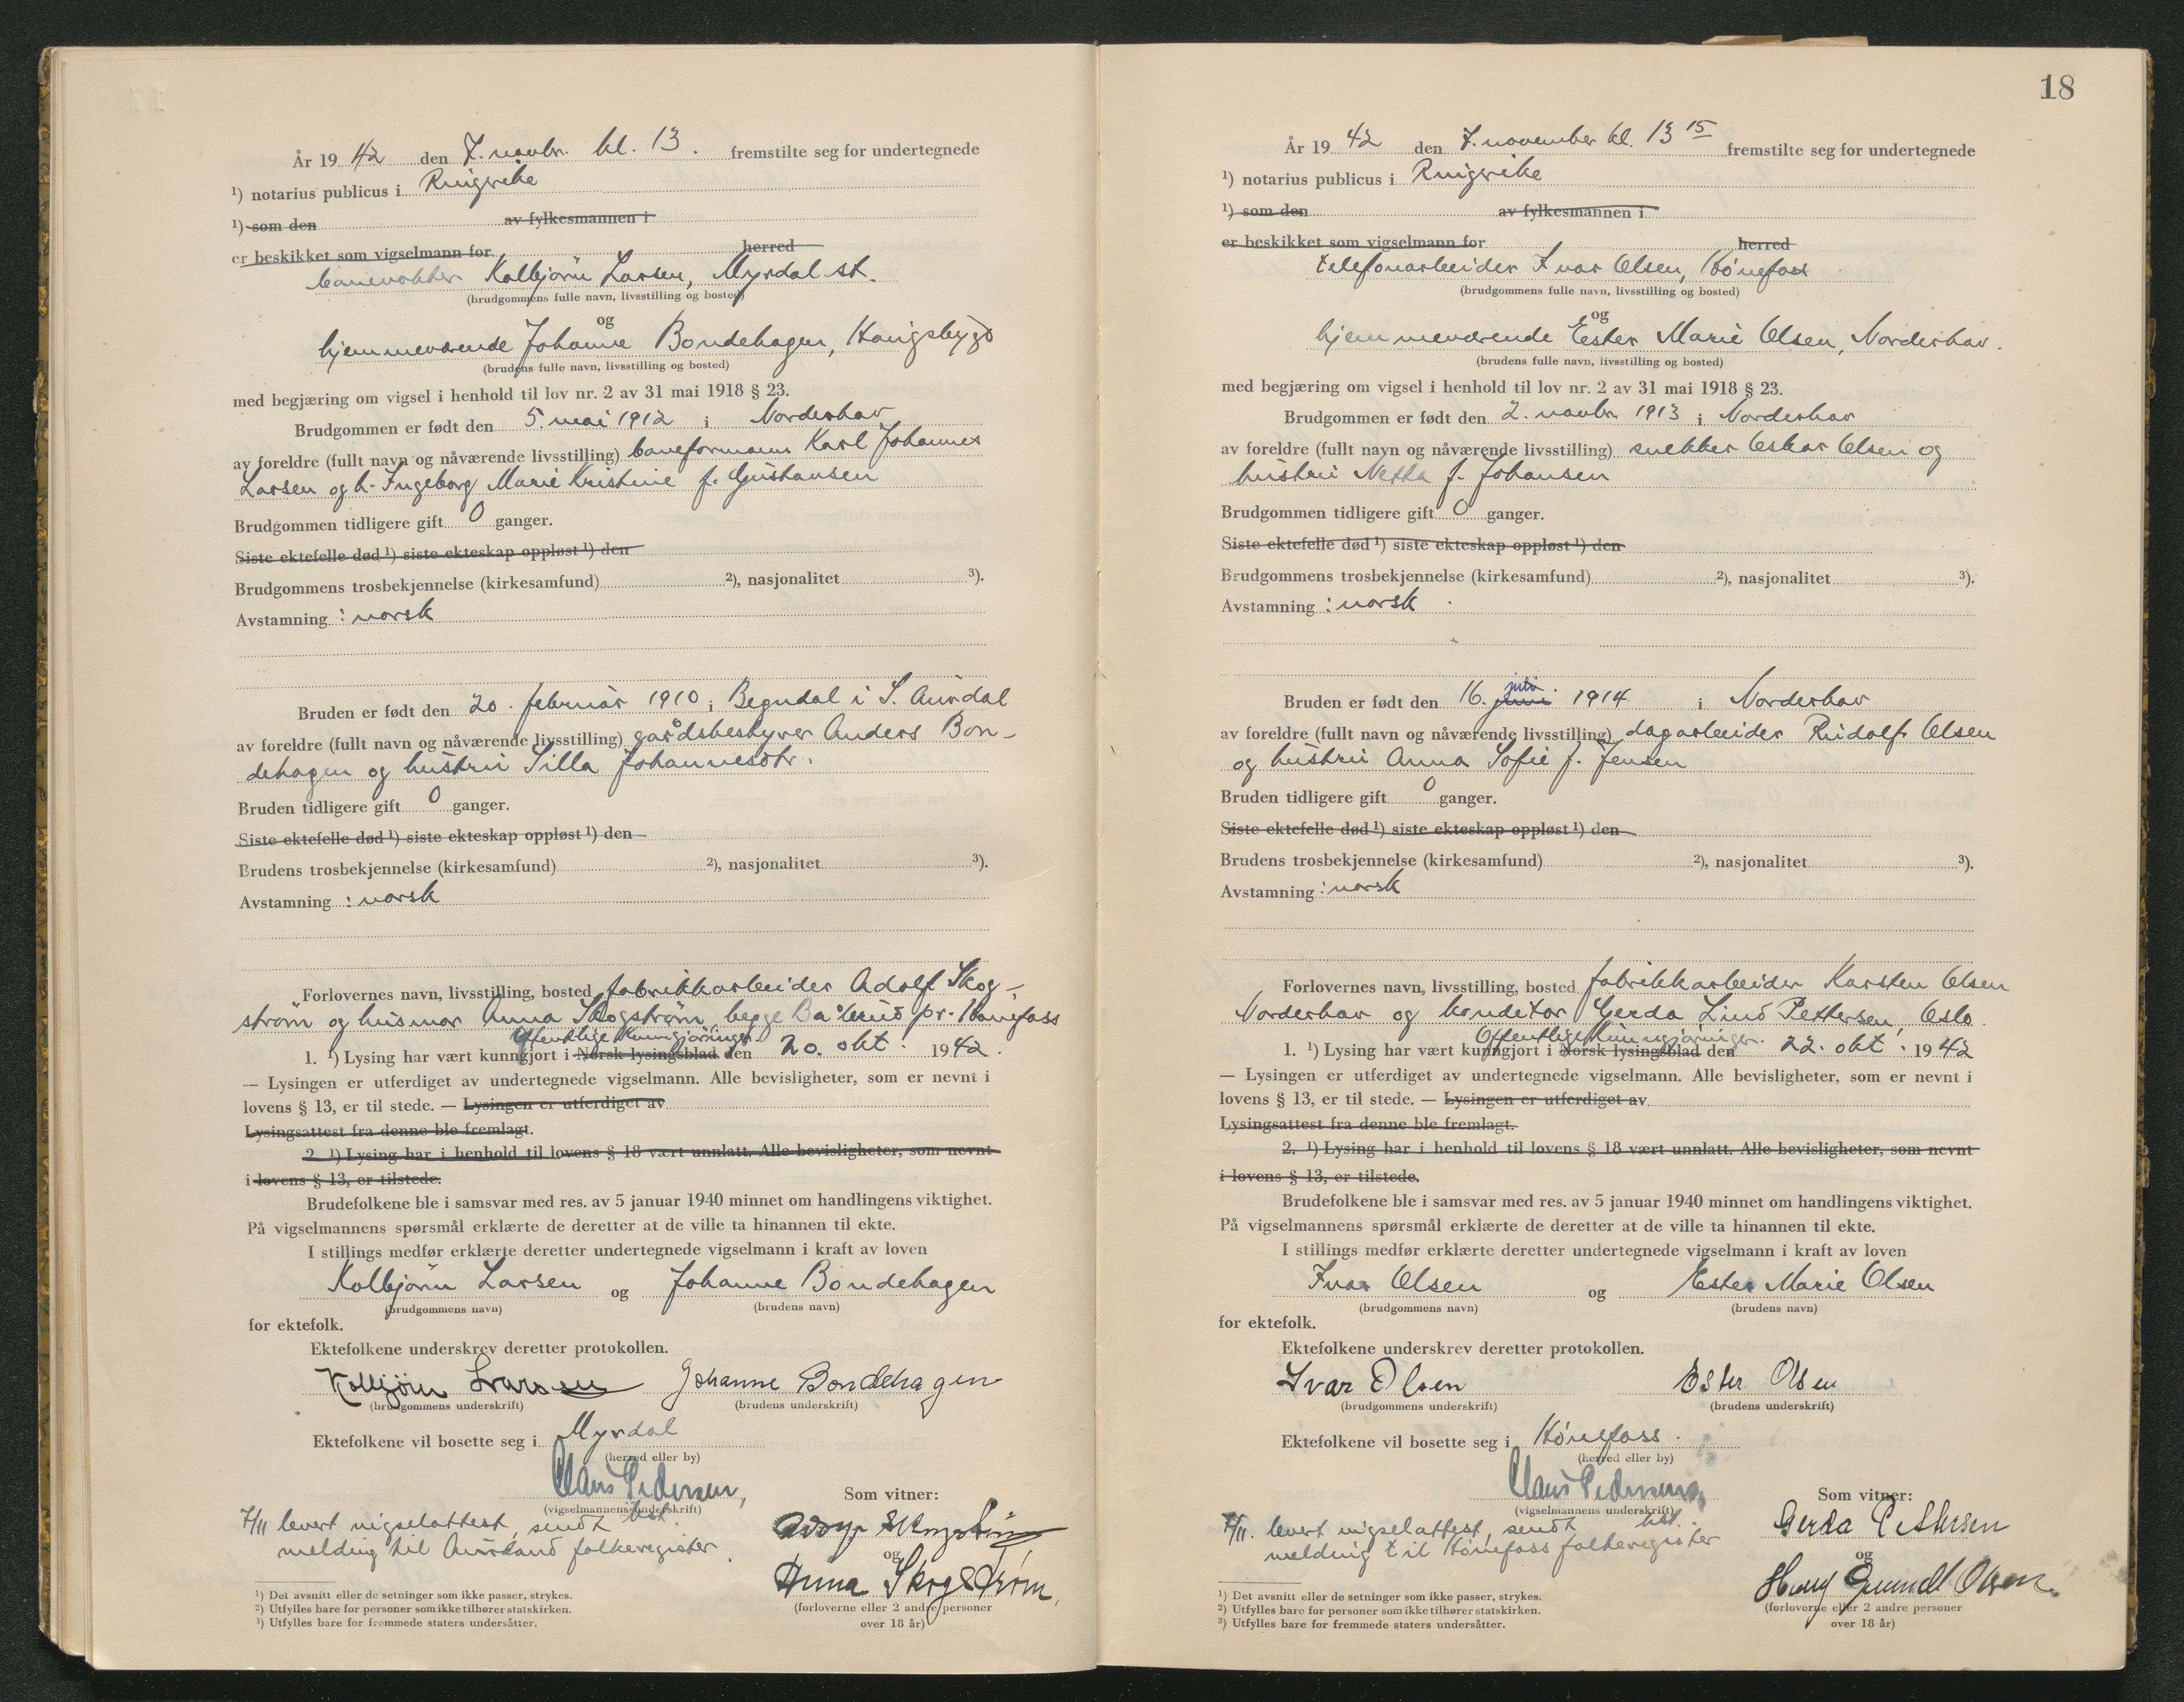 År 19 42 den 7. novbr. kl. 13. fremstilte seg for undertegnede
¹) notarius publicus i Ringerike
¹) som den av fylkesmannen i
er beskikket som vigselmann for herred
banevokter Kolbjørn Larsen, Myrdal st.
(brudgommens fulle navn, livsstilling og bosted)
og
hjemmeværende Johanne Bondehagen, Haugsbygd
(brudens fulle navn, livsstilling og bosted)
med begjæring om vigsel i henhold til lov nr. 2 av 31 mai 1918 § 23.
Brudgommen er født den 5. mai 1912 i Norderhov
av foreldre (fullt navn og nåværende livsstilling) baneformann Karl Johannes
Larsen og h. Ingeborg Marie Kristine f. Gustavsen
Brudgommen tidligere gift 0 ganger.
Siste ektefelle død ¹) siste ekteskap oppløst ¹) den
Brudgommens trosbekjennelse (kirkesamfund) ²), nasjonalitet ³).
Avstamning : norsk
Bruden er født den 20. februar 1910 i Begndal i S. Aurdal
av foreldre (fullt navn og nåværende livsstilling) gårdsbestyrer Anders Bon-
dehagen og hustru Silla Johannesdtr.
Bruden tidligere gift 0 ganger.
Siste ektefelle død ¹) siste ekteskap oppløst ¹) den
Brudens trosbekjennelse (kirkesamfund) ²), nasjonalitet ³).
Avstamning : norsk
Forlovernes navn, livsstilling, bosted fabrikkarbeider Adolf Skog-
strøm og husmor Anna Skogstrøm begge pr. Hønefoss
Offentlige Kunngjøringer
1. ¹) Lysing har vært kunngjort i Norsk lysingsblad den 20. okt. 1942.
— Lysingen er utferdiget av undertegnede vigselmann. Alle bevisligheter, som er nevnt i
lovens § 13, er til stede. — Lysingen er utferdiget av
Lysingsattest fra denne ble fremlagt.
2. ¹) Lysing har i henhold til lovens § 18 vært unnlatt. Alle bevisligheter, som nevnt
i lovens § 13, er tilstede.
Brudefolkene ble i samsvar med res. av 5 januar 1940 minnet om handlingens viktighet.
På vigselmannens spørsmål erklærte de deretter at de ville ta hinannen til ekte.
I stillings medfør erklærte deretter undertegnede vigselmann i kraft av loven
Kolbjørn Larsen og Johanne Bondehagen
(brudgommens navn) (brudens navn)
for ektefolk.
Ektefolkene underskrev deretter protokollen.
Kolbjörn Larsen Johanne Bondehagen
(brudgommens underskrift) (brudens underskrift)
Ektefolkene vil bosette seg i Myrdal
(herred eller by)
Claus Pedersen,
(vigselmannens underskrift)
Som vitner:
7/11 levert vigselattest, sendt
melding til Aurland folkeregister.
Adolf Skogstrøm
og
Anna Skogstrøm,
(forloverne eller 2 andre personer
over 18 år)
¹) Det avsnitt eller de setninger som ikke passer, strykes.
²) Utfylles bare for personer som ikke tilhører statskirken.
³) Utfylles bare for fremmede staters undersåtter.
18
År 19 42 den 7. november kl. 13 15 fremstilte seg for undertegnede
¹) notarius publicus i Ringerike
¹) som den av fylkesmannen i
er beskikket som vigselmann for herred
telefonarbeider Ivar Olsen, Hønefoss
(brudgommens fulle navn, livsstilling og bosted)
og
hjemmeværende Ester Marie Olsen, Norderhov.
(brudens fulle navn, livsstilling og bosted)
med begjæring om vigsel i henhold til lov nr. 2 av 31 mai 1918 § 23.
Brudgommen er født den 2. novbr. 1913 i Norderhov
av foreldre (fullt navn og nåværende livsstilling) snekker Oskar Olsen og
hustru Netta f. Johansen
Brudgommen tidligere gift 0 ganger.
Siste ektefelle død ¹) siste ekteskap oppløst ¹) den
Brudgommens trosbekjennelse (kirkesamfund) ²), nasjonalitet ³).
Avstamning : norsk
Bruden er født den 16. juni juli 1914 i Norderhov
av foreldre (fullt navn og nåværende livsstilling) dagarbeider Rudolf Olsen
og hustru Anna Sofie f. Jensen
Bruden tidligere gift 0 ganger.
Siste ektefelle død ¹) siste ekteskap oppløst ¹) den
Brudens trosbekjennelse (kirkesamfund) ²), nasjonalitet ³).
Avstamning : norsk
Forlovernes navn, livsstilling, bosted fabrikkarbeider Karsten Olsen
Norderhov og konditor Gerda Lind Pettersen, Oslo.
Offentlige Kunngjøringer.
1. ¹) Lysing har vært kunngjort i Norsk lysingsblad den 22. okt. 1942
— Lysingen er utferdiget av undertegnede vigselmann. Alle bevisligheter, som er nevnt i
lovens § 13, er til stede. — Lysingen er utferdiget av
Lysingsattest fra denne ble fremlagt.
2. ¹) Lysing har i henhold til lovens § 18 vært unnlatt. Alle bevisligheter, som nevnt
i lovens § 13, er tilstede.
Brudefolkene ble i samsvar med res. av 5 januar 1940 minnet om handlingens viktighet.
På vigselmannens spørsmål erklærte de deretter at de ville ta hinannen til ekte.
I stillings medfør erklærte deretter undertegnede vigselmann i kraft av loven
Ivar Olsen og Ester Marie Olsen
(brudgommens navn) (brudens navn)
for ektefolk.
Ektefolkene underskrev deretter protokollen.
Ivar Olsen Ester Olsen
(brudgommens underskrift) (brudens underskrift)
Ektefolkene vil bosette seg i Hønefoss.
(herred eller by)
Claus Pedersen,
(vigselmannens underskrift)
Som vitner:
7/11. levert vigselattest, sendt
melding til Hønefoss folkeregister
Gerda Pettersen
og
Olsen.
(forloverne eller 2 andre personer
over 18 år)
¹) Det avsnitt eller de setninger som ikke passer, strykes.
²) Utfylles bare for personer som ikke tilhører statskirken.
³) Utfylles bare for fremmede staters undersåtter.